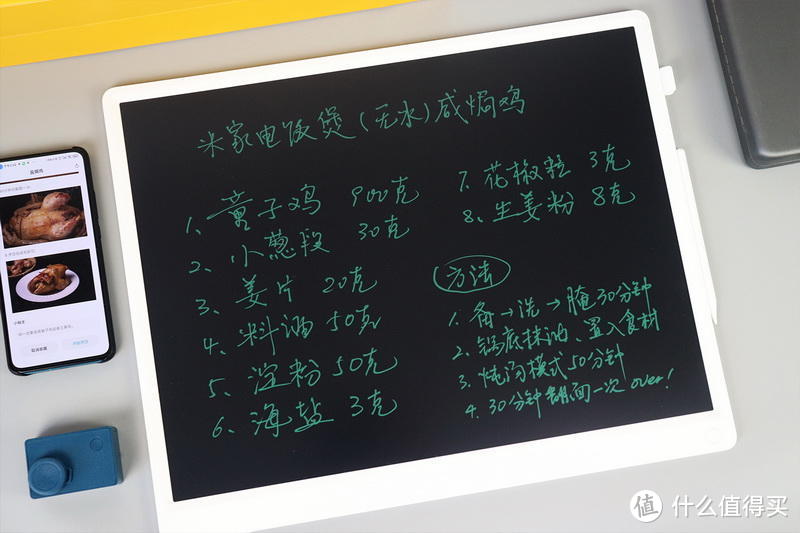 米家电饭煲(无水)咸焗鸡
1、童子鸡 900克
2、小葱段 30克
3、姜片 20克
4、料酒 50克
5、淀粉 50克
6、海盐 3克
7. 花椒粒 3克
8、生姜粉 8克
方法
1. 备→洗→腌30分钟
2. 锅底抹油、置入食材
3. 炖汤模式50分钟
4. 30分钟翻面一次 over!
盐焗鸡
小贴士
取消收藏
值 什么值得买